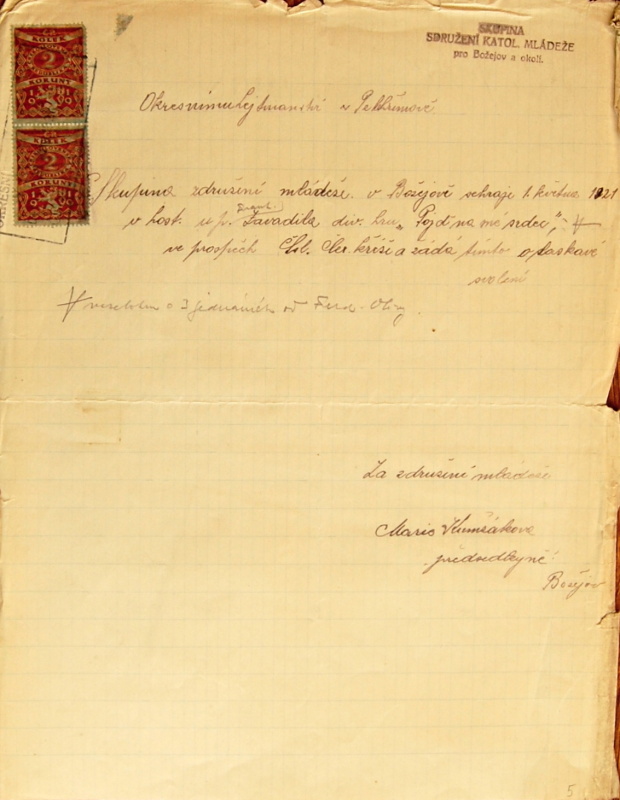 SKUPINA
SDRUŽENÍ KATOL. MLÁDEŽE
pro Božejov a okolí.
KOLEK
2
KORUNY
KOLEK
2
KORUNY
Okresnímu hejtmanství v Pelhřimově.
Skupina združení mládeže v Božejově sehraje 1. května 1921
v host. u p. Zavadila div. hru „Pojď na mé srdce",
ve prospěch Čsl. Čer. kříže a žádá tímto o laskavé
svolení
veselohra o 3 jednáních od Ferd.
Za združení mládeže
Marie
předsedkyně
Božejov
5